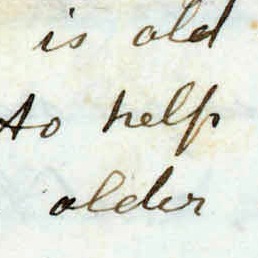 is old
to help
older